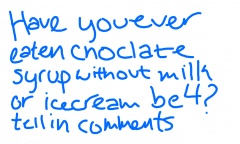 Have you ever
eaten choclate
syrup without milk
or icecream be4?
tell in comments